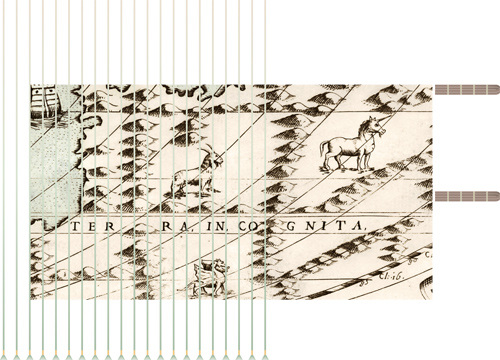 TERRA. IN. COGNITA.